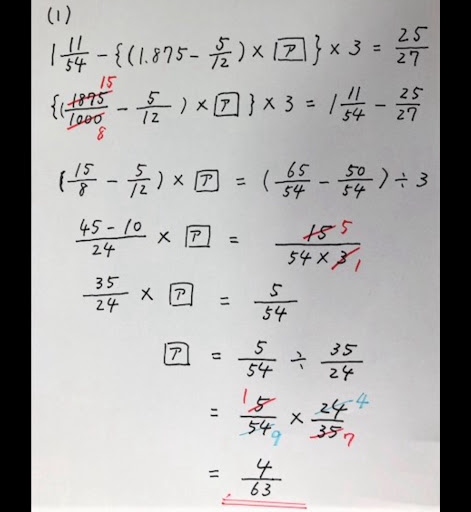 (1)
1 11/54 - {(1.875 - 5/12) × [ア]} × 3 = 25/27
{(1875/1000 15/8 - 5/12) × [ア]} × 3 = 1 11/54 - 25/27
(15/8 - 5/12) × [ア] = (65/54 - 50/54) ÷ 3
(45-10)/24 × [ア] = 15 5/(54 × 3 1)
35/24 × [ア] = 5/54
[ア] = 5/54 ÷ 35/24
= 1 5/54 9 × 24 4/35 7
= 4/63